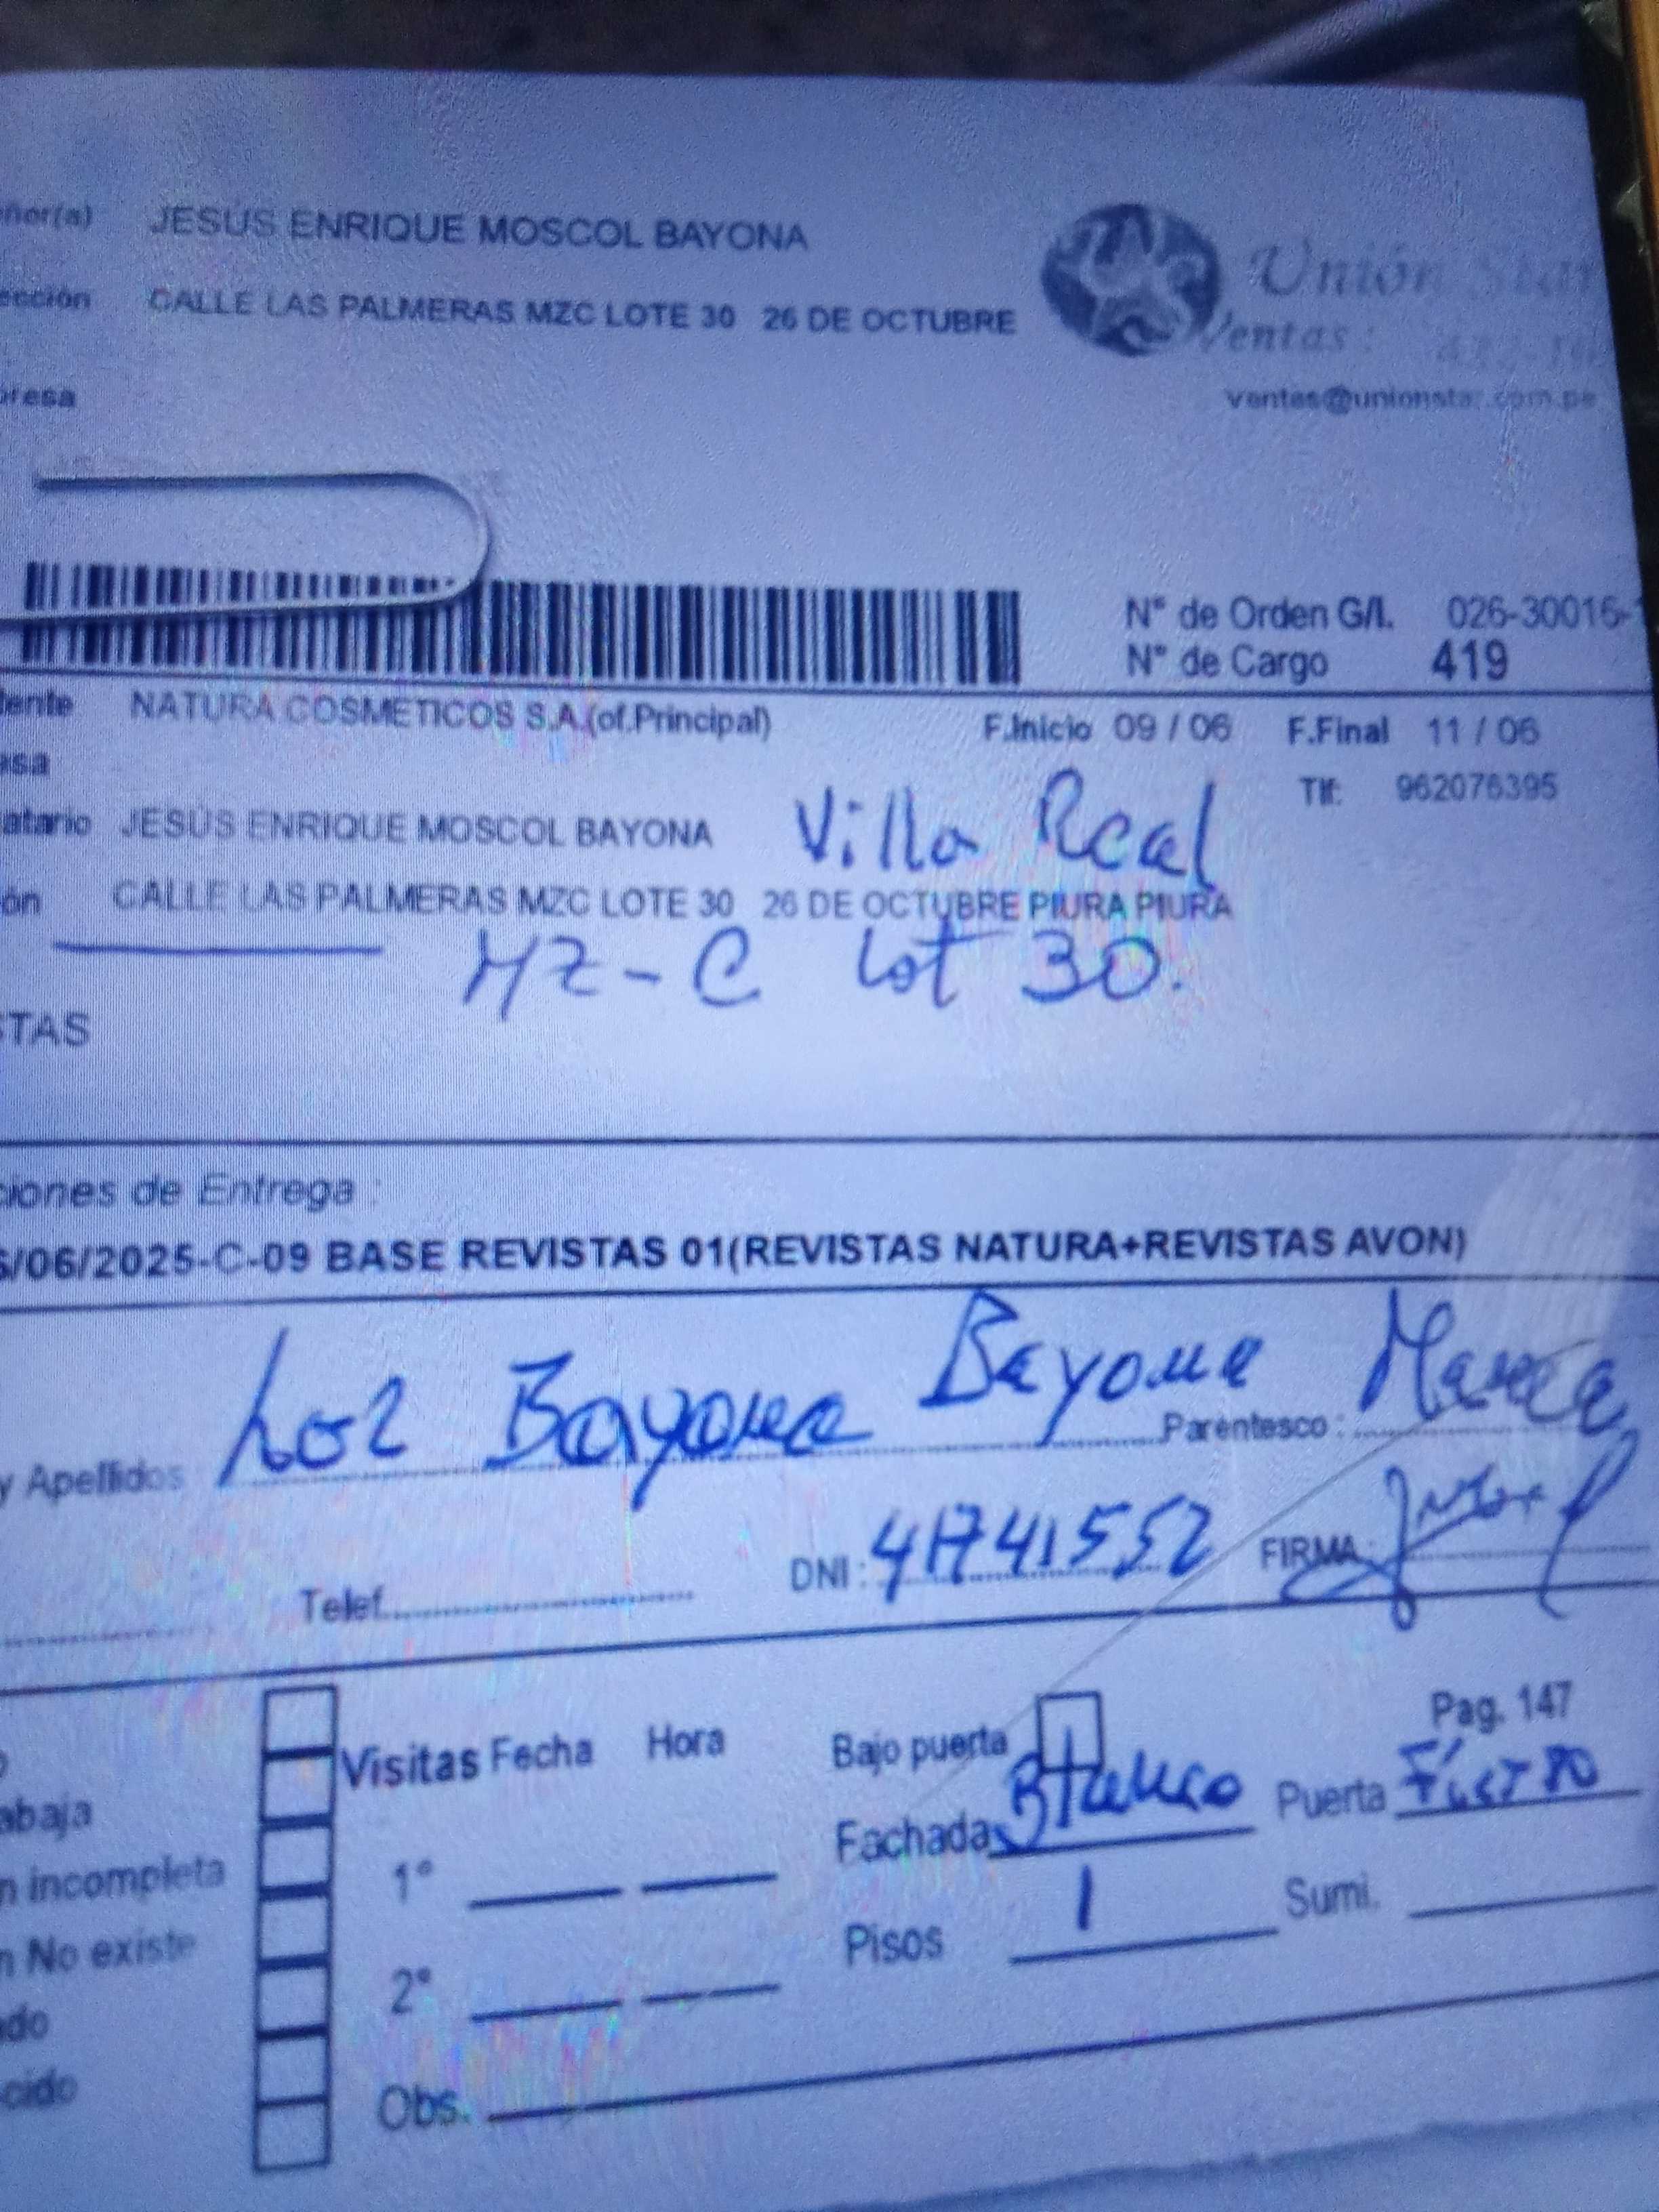 eñor(a) JESÚS ENRIQUE MOSCOL BAYONA
ección CALLE LAS PALMERAS MZC LOTE 30 26 DE OCTUBRE
Unión Star
Ventas :
presa
ventas@unionstar.com.pe
N° de Orden G/I. 026-30016-
N° de Cargo 419
tente NATURA COSMETICOS S.A.(of.Principal) F.Inicio 09 / 06 F.Final 11 / 06
asa
Tlf: 962076395
atario JESÚS ENRIQUE MOSCOL BAYONA Villa Real
ón CALLE LAS PALMERAS MZC LOTE 30 26 DE OCTUBRE PIURA PIURA
MZ-C Lot 30.
STAS
ciones de Entrega :
/06/2025-C-09 BASE REVISTAS 01(REVISTAS NATURA+REVISTAS AVON)
y Apellidos Loz Bayona Bayona Parentesco :
Telef. DNI : 41741552 FIRMA :
Pag. 147
Visitas Fecha Hora Bajo puerta
abaja Fachada Blanco Puerta Fierro
n incompleta 1° Pisos 1 Sumi.
n No existe
do 2°
cido Obs.